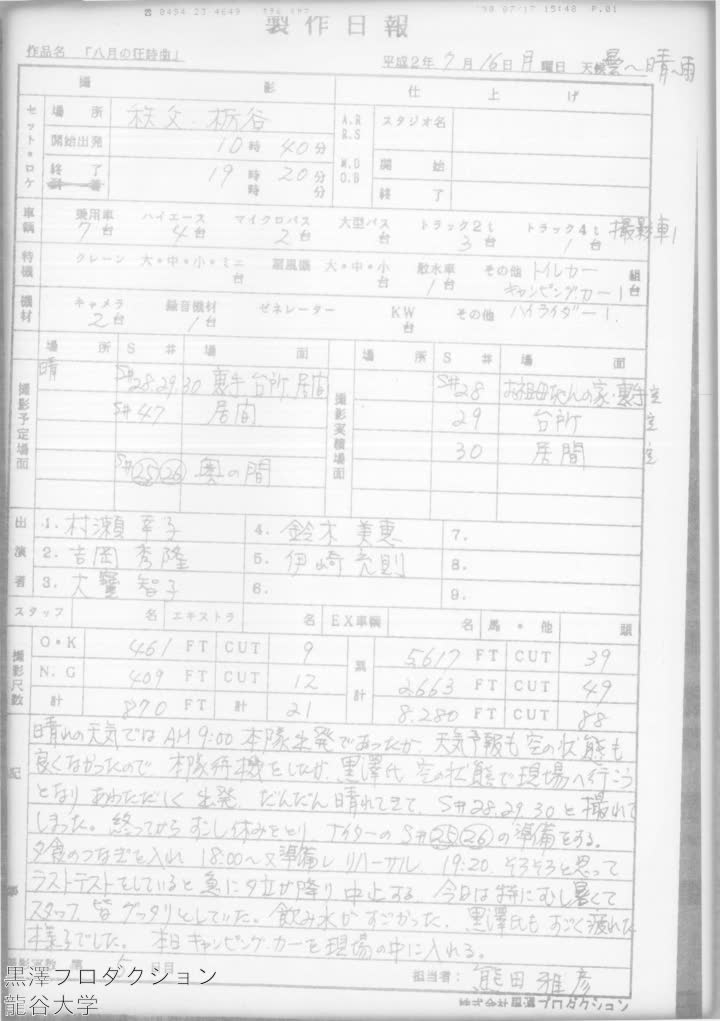 0494 23 4649
'90 07/17 15:48 P.01
製作日報
作品名 「八月の狂詩曲」 平成2年7月16日月曜日 天候 曇〜晴〜雨
撮影 仕上げ
セット・ロケ 場所 秩父・栃谷 A.R R.S スタジオ名
開始出発 10時40分
終了 19時20分 W.D O.B 開始
時 分 終了
車輌 乗用車 7台 ハイエース 4台 マイクロバス 2台 大型バス 台 トラック2t 3台 トラック4t 1台 撮影車1
特機 クレーン 大・中・小・ミニ 台 扇風機 大・中・小 台 散水車 1台 その他 トイレカー 組台
キャンピング・カー1
機材 キャメラ 2台 録音機材 1台 ゼネレーター KW 台 その他 ハイライダー1.
場所 S# 場面 場所 S# 場面
撮影予定場面 晴 S#28.29.30 裏手 台所 居間 撮影実績場面 S#28 お祖母ちゃんの家・裏手
S#47 居間 29 台所
30 居間
S#㉕㉖ 奥の間
出演者 1. 村瀬幸子 4. 鈴木美恵 7.
2. 吉岡秀隆 5. 伊崎充則 8.
3. 大寶智子 6. 9.
スタッフ 名 エキストラ 名 EX車輌 名 馬・他 頭
撮影尺数 O・K 461 FT CUT 9 累計 5.617 FT CUT 39
N.G 409 FT CUT 12 2.663 FT CUT 49
計 870 FT 計 21 8.280 FT CUT 88
記事
晴れの天気ではAM9:00本隊出発であったが、天気予報も空の状態も
良くなかったので 本隊待機をしたが、黒澤氏 空の状態で現場へ行こう
となり あわただしく出発、だんだん晴れてきて、S#28.29.30と撮れて
しまった。終ってから 少し休みをとり ナイターのS#㉕㉖の準備をする。
夕食のつなぎを入れ 18:00〜準備し リハーサル 19:20、そろそろと思って
ラストテストをしていると 急に夕立が降り 中止する、今日は特にむし暑くて
スタッフ 皆グッタリとしていた。飲み水がすごかった、黒澤氏もすごく疲れた
様子でした。 本日キャンピング・カーを現場の中に入れる。
撮影実数 第5日目 担当者: 熊田雅彦
株式会社黒澤プロダクション
黒澤プロダクション
龍谷大学